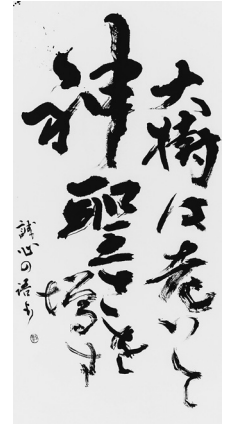 大樹は老いて
神聖さを
増す
誠心の語より